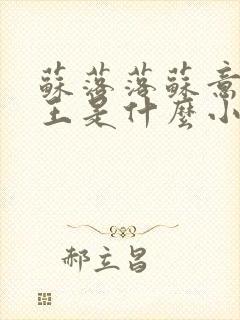 蘇落落蘇意
王是什麼小
郝立昌